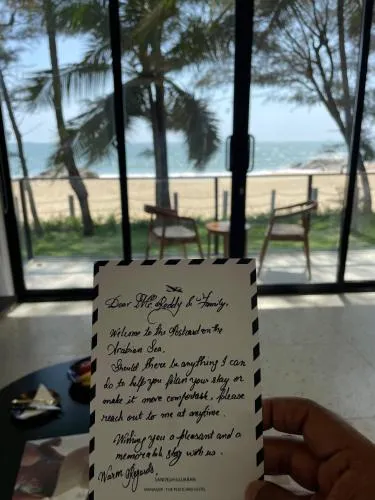 Dear Mr. Reddy & Family,
Welcome to the Postcard on the
Arabian Sea.
Should there be anything I can
do to help you plan your stay or
make it more comfortable, please
reach out to me at anytime.
Wishing you a pleasant and a
memorable stay with us.
Warm Regards,
MANAGER - THE POSTCARD HOTEL